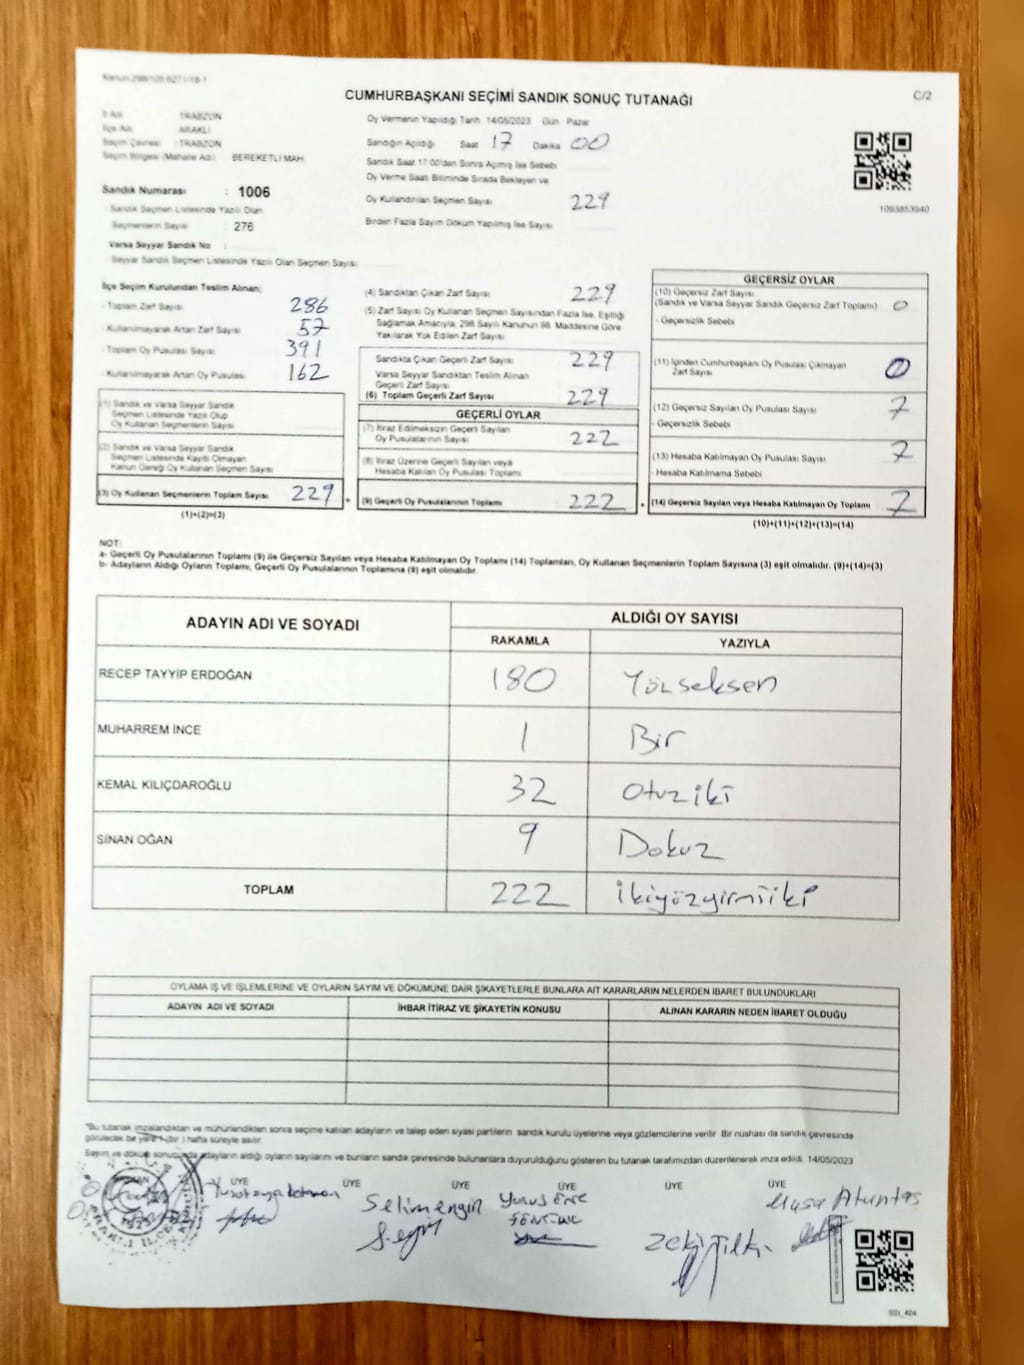 Kanun:298/105,6271/18-1
C/2
CUMHURBAŞKANI SEÇİMİ SANDIK SONUÇ TUTANAĞI
İl Adı : TRABZON
İlçe Adı : ARAKLI
Seçim Çevresi : TRABZON
Seçim Bölgesi (Mahalle Adı) : BEREKETLİ MAH.
Sandık Numarası : 1006
- Sandık Seçmen Listesinde Yazılı Olan
Seçmenlerin Sayısı : 276
Varsa Seyyar Sandık No :
- Seyyar Sandık Seçmen Listesinde Yazılı Olan Seçmen Sayısı
Oy Vermenin Yapıldığı Tarih 14/05/2023 Gün Pazar
Sandığın Açıldığı Saat 17 Dakika 00
Sandık Saat 17:00'den Sonra Açılmış İse Sebebi
Oy Verme Saati Bitiminde Sırada Bekleyen ve
Oy Kullandırılan Seçmen Sayısı 229
Birden Fazla Sayım Döküm Yapılmış İse Sayısı
1093853940
İlçe Seçim Kurulundan Teslim Alınan;
- Toplam Zarf Sayısı 286
- Kullanılmayarak Artan Zarf Sayısı 57
- Toplam Oy Pusulası Sayısı 391
- Kullanılmayarak Artan Oy Pusulası 162
(1) Sandık ve Varsa Seyyar Sandık
Seçmen Listesinde Yazılı Olup
Oy Kullanan Seçmenlerin Sayısı
(2) Sandık ve Varsa Seyyar Sandık
Seçmen Listesinde Kayıtlı Olmayan
Kanun Gereği Oy Kullanan Seçmen Sayısı
(3) Oy Kullanan Seçmenlerin Toplam Sayısı 229
(1)+(2)=(3)
(4) Sandıktan Çıkan Zarf Sayısı 229
(5) Zarf Sayısı Oy Kullanan Seçmen Sayısından Fazla İse, Eşitliği
Sağlamak Amacıyla, 298 Sayılı Kanunun 98. Maddesine Göre
Yakılarak Yok Edilen Zarf Sayısı
Sandıkta Çıkan Geçerli Zarf Sayısı 229
Varsa Seyyar Sandıktan Teslim Alınan
Geçerli Zarf Sayısı
(6) Toplam Geçerli Zarf Sayısı 229
GEÇERLİ OYLAR
(7) İtiraz Edilmeksizin Geçerli Sayılan
Oy Pusulalarının Sayısı 222
(8) İtiraz Üzerine Geçerli Sayılan veya
Hesaba Katılan Oy Pusulası Toplamı
= (9) Geçerli Oy Pusulalarının Toplamı 222
GEÇERSİZ OYLAR
(10) Geçersiz Zarf Sayısı
(Sandık ve Varsa Seyyar Sandık Geçersiz Zarf Toplamı) 0
- Geçersizlik Sebebi
(11) İçinden Cumhurbaşkanı Oy Pusulası Çıkmayan
Zarf Sayısı 0
(12) Geçersiz Sayılan Oy Pusulası Sayısı 7
- Geçersizlik Sebebi
(13) Hesaba Katılmayan Oy Pusulası Sayısı 7
- Hesaba Katılmama Sebebi
+ (14) Geçersiz Sayılan veya Hesaba Katılmayan Oy Toplamı 7
(10)+(11)+(12)+(13)=(14)
NOT:
a- Geçerli Oy Pusulalarının Toplamı (9) ile Geçersiz Sayılan veya Hesaba Katılmayan Oy Toplamı (14) Toplamları, Oy Kullanan Seçmenlerin Toplam Sayısına (3) eşit olmalıdır. (9)+(14)=(3)
b- Adayların Aldığı Oyların Toplamı, Geçerli Oy Pusulalarının Toplamına (9) eşit olmalıdır.
ADAYIN ADI VE SOYADI ALDIĞI OY SAYISI
RAKAMLA YAZIYLA
RECEP TAYYİP ERDOĞAN 180 Yüzseksen
MUHARREM İNCE 1 Bir
KEMAL KILIÇDAROĞLU 32 Otuziki
SİNAN OĞAN 9 Dokuz
TOPLAM 222 ikiyüzyirmiiki
OYLAMA İŞ VE İŞLEMLERİNE VE OYLARIN SAYIM VE DÖKÜMÜNE DAİR ŞİKAYETLERLE BUNLARA AİT KARARLARIN NELERDEN İBARET BULUNDUKLARI
ADAYIN ADI VE SOYADI İHBAR İTİRAZ VE ŞİKAYETİN KONUSU ALINAN KARARIN NEDEN İBARET OLDUĞU
"Bu tutanak imzalandıktan ve mühürlendikten sonra seçime katılan adayların ve talep eden siyasi partilerin sandık kurulu üyelerine veya gözlemcilerine verilir. Bir nüshası da sandık çevresinde
görülecek bir yere 1 (bir ) hafta süreyle asılır.
Sayım ve döküm sonucunda adayların aldığı oyların sayılarını ve bunların sandık çevresinde bulunanlara duyurulduğunu gösteren bu tutanak tarafımızdan düzenlenerek imza edildi. 14/05/2023
ÜYE ÜYE ÜYE ÜYE ÜYE ÜYE
Selim engin
Yunus ENC
Zeki Tilki
Musa Altuntaş
SSI_404